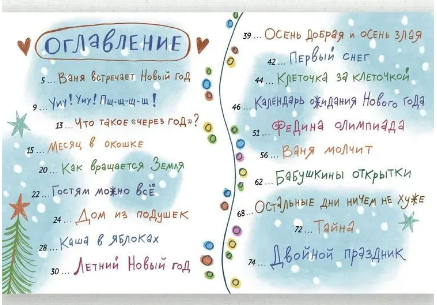 Оглавление
5... Ваня встречает Новый год
9... Уиу! Уиу! Пш-щ-щ-щ!
13... Что такое «через год»?
15... Месяц в окошке
20... Как вращается Земля
22... Гостям можно всё
24... Дом из подушек
28... Каша в яблоках
30... Летний Новый год
39... Осень добрая и осень злая
42... Первый снег
44... Клеточка за клеточкой
46 Календарь ожидания Нового года
51... Федина олимпиада
56... Ваня молчит
62... Бабушкины открытки
68... Остальные дни ничем не хуже
72... Тайна
74... Двойной праздник